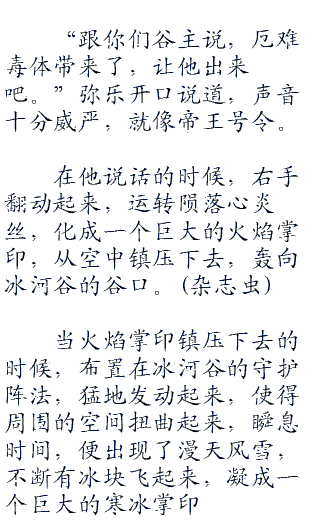 “跟你们谷主说，厄难
毒体带来了，让他出来
吧。”弥乐开口说道，声音
十分威严，就像帝王号令。
在他说话的时候，右手
翻动起来，运转陨落心炎
丝，化成一个巨大的火焰掌
印，从空中镇压下去，轰向
冰河谷的谷口。(杂志虫)
当火焰掌印镇压下去的
时候，布置在冰河谷的守护
阵法，猛地发动起来，使得
周围的空间扭曲起来，瞬息
时间，便出现了漫天风雪，
不断有冰块飞起来，凝成一
个巨大的寒冰掌印